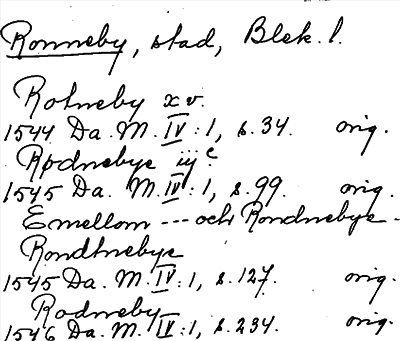 Ronneby, stad, Blek. l.
Rotneby xv.
1544 Da. M. IV:1, s. 34. orig.
Rødnebye iij c
1545 Da. M. IV:1, s. 99. orig.
Emellom --- och Rondnebye -
Rondtnebye
1545 Da. M. IV:1, s. 127. orig.
Rodneby
1546 Da. M. IV:1, s. 234. orig.